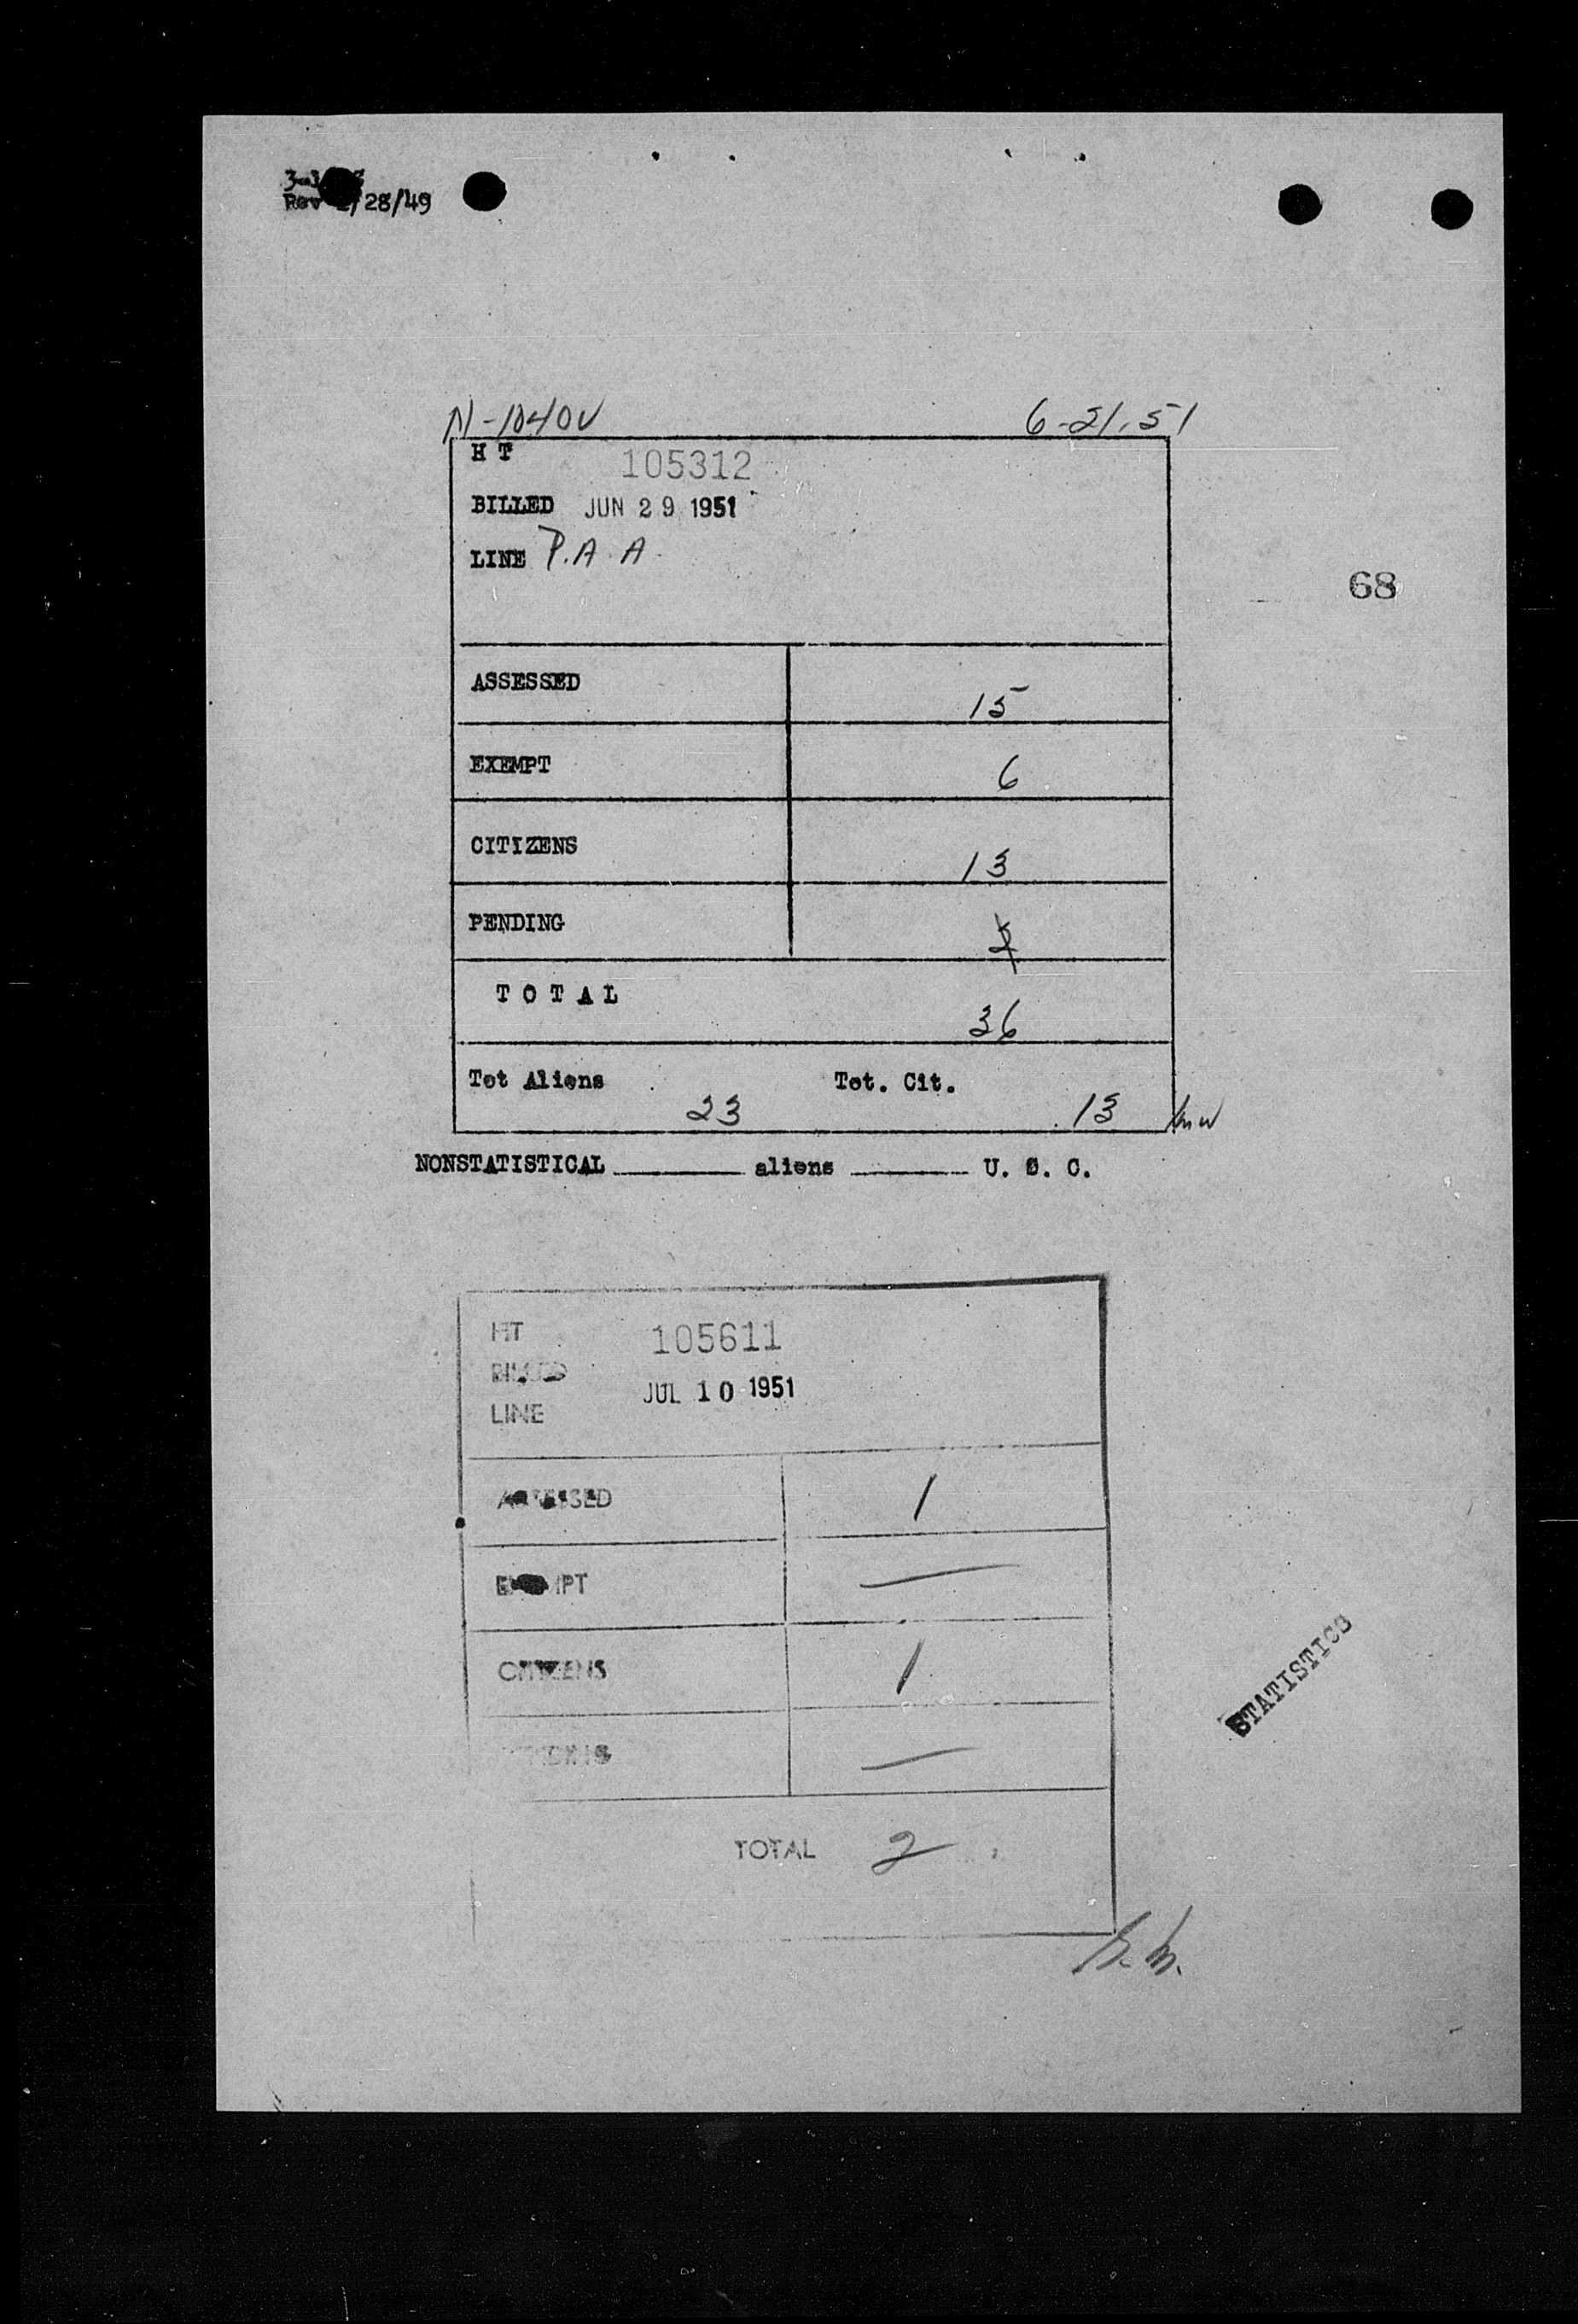 Rev 28/49
N-1040V 6-21-51
H T 105312
BILLED JUN 29 1951
LINE P.A.A.
68
ASSESSED 15
EXEMPT 6
CITIZENS 13
PENDING
T O T A L 36
Tot Aliens 23 Tot. Cit. 13
NONSTATISTICAL aliens U. S. C.
HT 105611
BILLED JUL 10 1951
LINE
ASSESSED 1
EXEMPT —
CITIZENS 1
PENDING —
STATISTICS
TOTAL 2